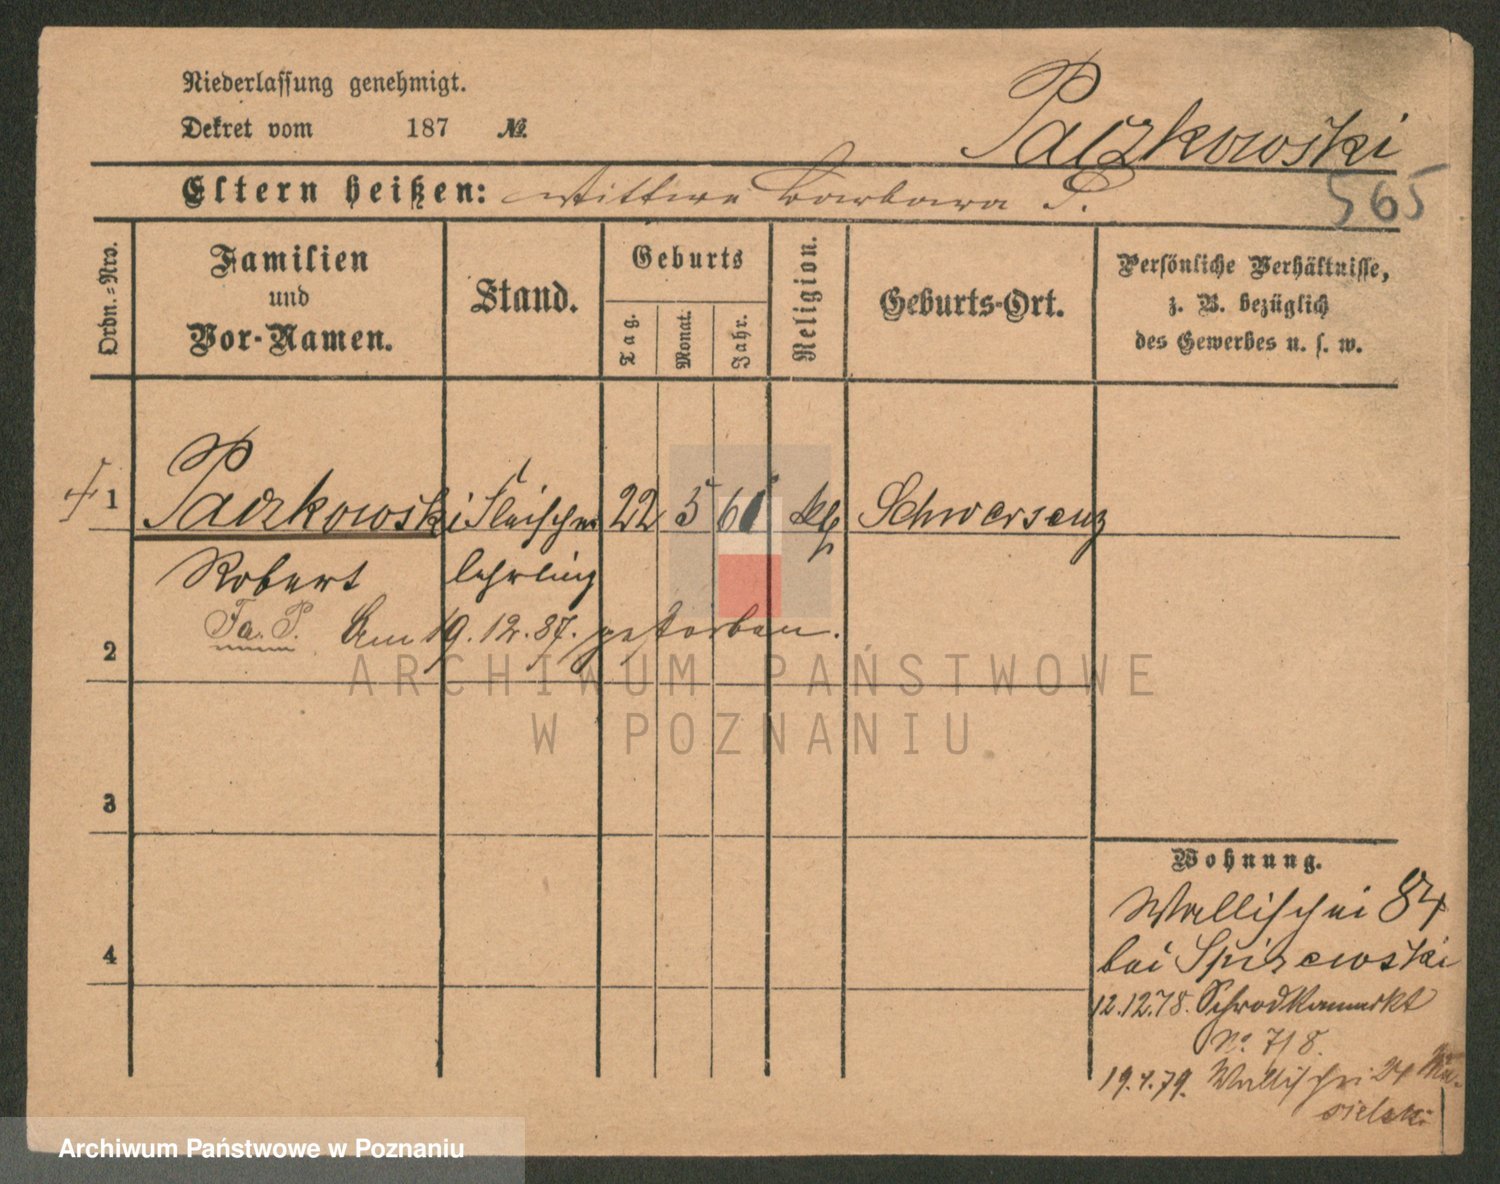 Niederlassung genehmigt.
Dekret vom 187 №
Paczkowski
Eltern heißen: Wittwe Barbara P.
565
Ordn.-Nro.
Familien
und
Vor-Namen.
Stand.
Geburts
Tag.
Monat.
Jahr.
Religion.
Geburts-Ort.
Persönliche Verhältnisse,
z. B. bezüglich
des Gewerbes u. s. w.
1 Paczkowski Fleischer 22 5 61 kth Schwersenz
Robert lehrling
Fa. P. Am 19. 12. 87. gestorben.
2
3
4
Wohnung.
Wallischei 84
bei Spizewski
12.12.78. Schrodkamarkt
No. 718.
19.4.79. Wallischei
ARCHIWUM PAŃSTWOWE
W POZNANIU
Archiwum Państwowe w Poznaniu